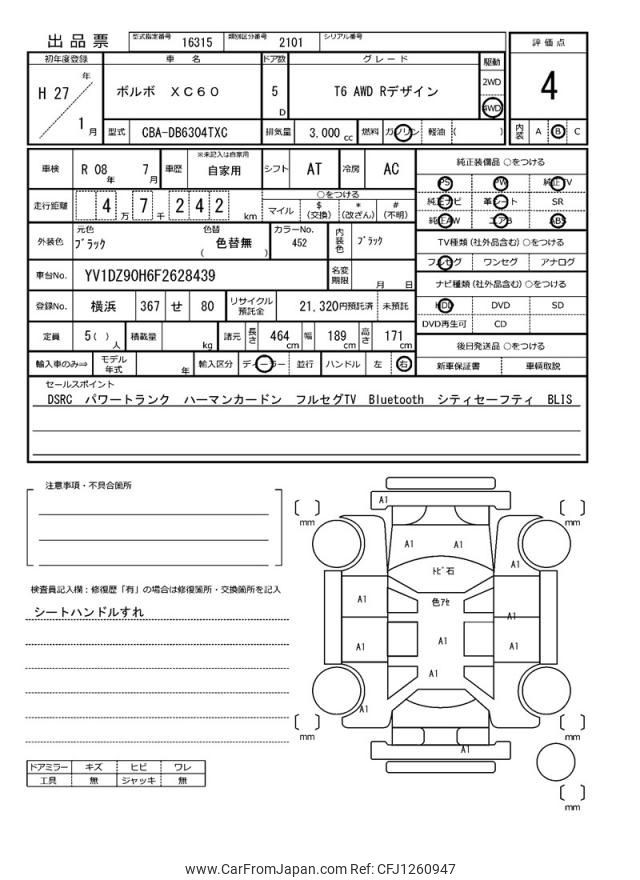 出品票 型式指定番号 16315 類別区分番号 2101 シリアル番号
初年度登録 車 名 ドア数 グレード 駆動 評価点
H 27 年 1 月 ボルボ XC60 5 D T6 AWD Rデザイン 2WD 4WD 4
型式 CBA-DB6304TXC 排気量 3,000 cc 燃料 ガソリン 軽油 ( ) 内装 A B C
車検 R 08 年 7 月 車歴 ※未記入は自家用 自家用 シフト AT 冷房 AC
純正装備品 ○をつける
PS PW 純正TV
純正ナビ 革シート SR
純正AW エアB ABS
走行距離 4 万 7 千 2 4 2 km ○をつける マイル $ (交換) * (改ざん) # (不明)
外装色 元色 ブラック 色替 ( 色替無 ) カラーNo. 452 内装色 ブラック
TV種類 (社外品含む) ○をつける
フルセグ ワンセグ アナログ
車台No. YV1DZ90H6F2628439 名変期限 月 日
ナビ種類 (社外品含む) ○をつける
HDD DVD SD
DVD再生可 CD
登録No. 横浜 367 せ 80 リサイクル預託金 21,320円預託済 未預託
定員 5 ( ) 人 積載量 kg 諸元 長さ 464 cm 幅 189 cm 高さ 171 cm
後日発送品 ○をつける
新車保証書 車輌取説
輸入車のみ⇒ モデル年式 年 輸入区分 ディーラー 並行 ハンドル 左 右
セールスポイント
DSRC パワートランク ハーマンカードン フルセグTV Bluetooth シティセーフティ BLIS
注意事項・不具合箇所
検査員記入欄：修復歴「有」の場合は修復箇所・交換箇所を記入
シートハンドルすれ
A1
mm mm
A1 A1
トビ石 A1
A1 色アセ
A1
A1 A1 A1
A1
A1
mm mm
A1
mm
ドアミラー キズ ヒビ ワレ
工具 無 ジャッキ 無
www.CarFromJapan.com Ref: CFJ1260947